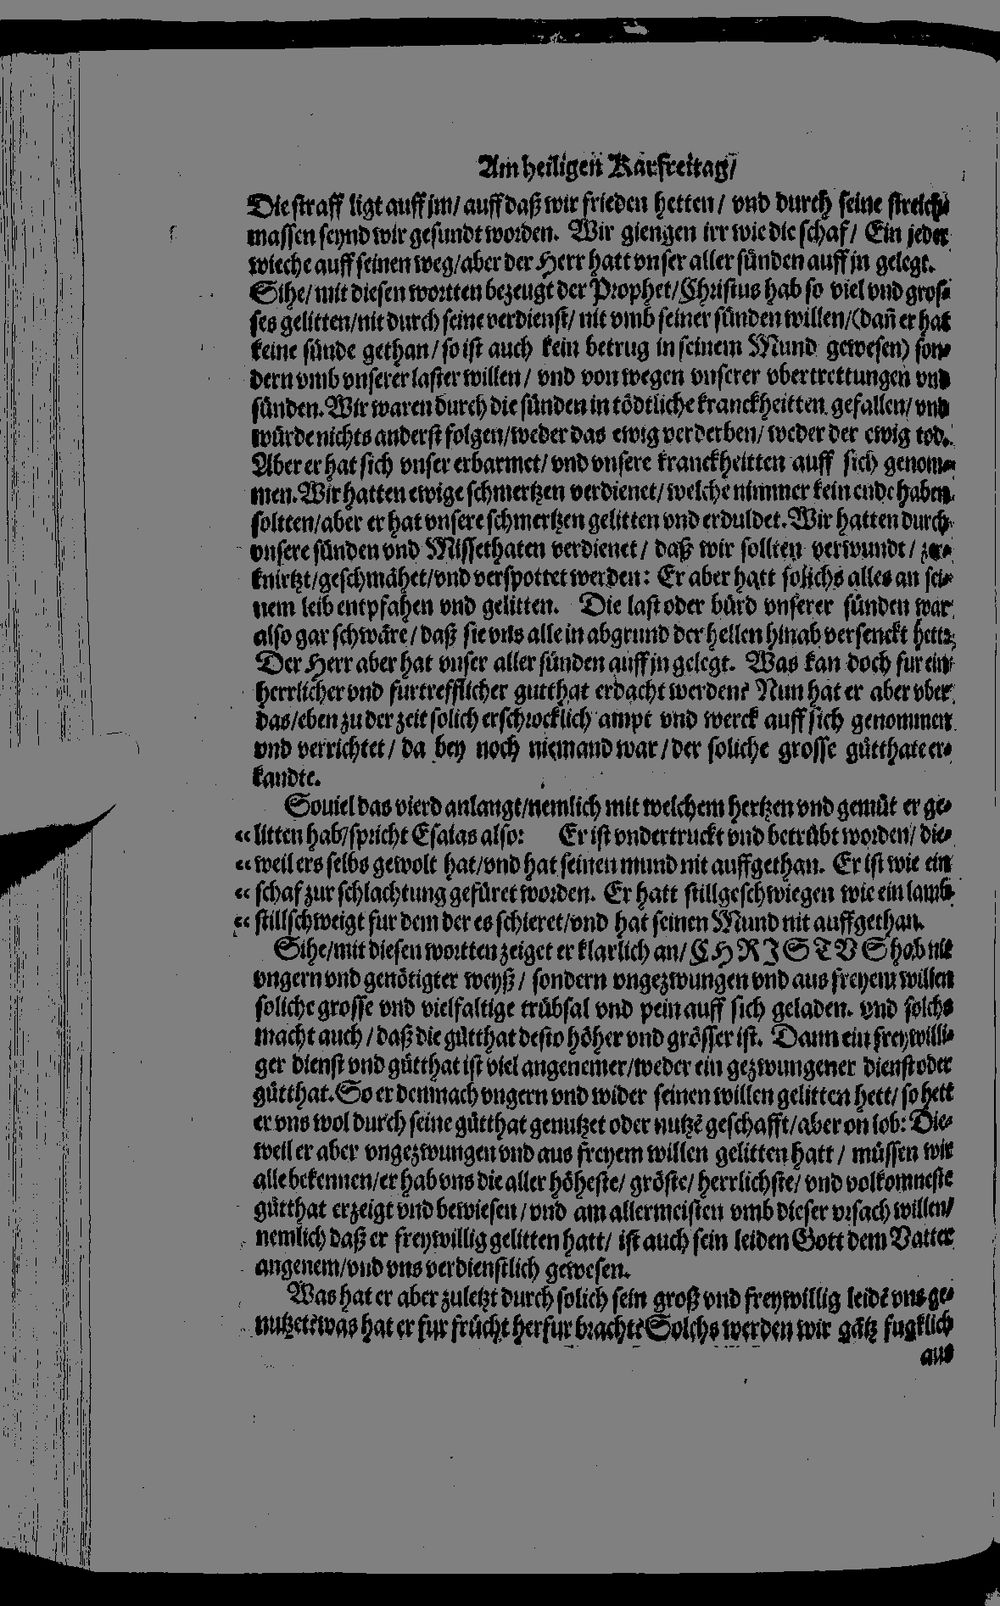 Am heiligen Karfreitag/
Die straff ligt auff jm/ auff daß wir frieden hetten/ vnd durch seine streich-
massen seynd wir gesundt worden. Wir giengen irr wie die schaf/ Ein jeder
wieche auff seinen weg/ aber der Herr hatt vnser aller sünden auff jn gelegt.
Sihe/ mit diesen wortten bezeugt der Prophet/ Christus hab so viel vnd gros-
ses gelitten/ nit durch seine verdienst/ nit vmb seiner sünden willen/ (dañ er hat
keine sünde gethan/ so ist auch kein betrug in seinem Mund gewesen) son-
dern vmb vnserer laster willen/ vnd von wegen vnserer vbertrettungen vnd
sünden. Wir waren durch die sünden in tödtliche kranckheitten gefallen/ vnd
würde nichts anderst folgen/ weder das ewig verderben/ weder der ewig tod.
Aber er hat sich vnser erbarmet/ vnd vnsere kranckheitten auff sich genom-
men. Wir hatten ewige schmertzen verdienet/ welche nimmer kein ende haben
soltten/ aber er hat vnsere schmertzen gelitten vnd erduldet. Wir hatten durch
vnsere sünden vnd Missethaten verdienet/ daß wir sollten verwundt/ zer-
knirtzt/ geschmähet/ vnd verspottet werden: Er aber hatt solichs alles an sei-
nem leib entpfahen vnd gelitten. Die last oder bürd vnserer sünden war
also gar schwäre/ daß sie vns alle in abgrund der hellen hinab versenckt hette.
Der Herr aber hat vnser aller sünden auff jn gelegt. Was kan doch fur ein
herrlicher vnd furtrefflicher gutthat erdacht werden? Nun hat er aber vber
das/ eben zu der zeit solich erschrocklich ampt vnd werck auff sich genommen
vnd verrichtet/ da bey noch niemand war/ der soliche grosse gütthate er-
kandte.
Souiel das vierd anlangt/ nemlich mit welchem hertzen vnd gemüt er ge-
“ litten hab/ spricht Esaias also: Er ist vndertruckt vnd betrübt worden/ die-
“ weil ers selbs gewolt hat/ vnd hat seinen mund nit auffgethan. Er ist wie ein
“ schaf zur schlachtung gefüret worden. Er hatt stillgeschwiegen wie ein lamb
“ stillschweigt fur dem der es schieret/ vnd hat seinen Mund nit auffgethan.
Sihe/ mit diesen wortten zeiget er klarlich an/ CHRISTVS hab nit
vngern vnd genötigter weyß/ sondern vngezwungen vnd aus freyem willen
soliche grosse vnd vielfaltige trübsal vnd pein auff sich geladen. vnd solchs
macht auch/ daß die gütthat desto höher vnd grösser ist. Dann ein freywilli-
ger dienst vnd gütthat ist viel angenemer/ weder ein gezwungener dienst oder
gütthat. So er dennnach vngern vnd wider seinen willen gelitten hett/ so hett
er vns wol durch seine gütthat genutzet oder nutzẽ geschafft/ aber on lob: Die-
weil er aber vngezwungen vnd aus freyem willen gelitten hatt/ müssen wir
alle bekennen/ er hab vns die aller höheste/ gröste/ herrlichste/ vnd volkomneste
gütthat erzeigt vnd bewiesen/ vnd am allermeisten vmb dieser vrsach willen/
nemlich daß er freywillig gelitten hatt/ ist auch sein leiden Gott dem Vatter
angenem/ vnd vns verdienstlich gewesen.
Was hat er aber zuletzt durch solich sein groß vnd freywillig leidẽ vns ge-
nutzet? was hat er fur frücht herfur bracht? Solchs werden wir gätz fugklich
aus